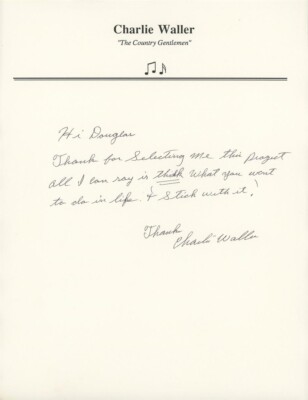 Charlie Waller
"The Country Gentlemen"
Hi Douglas
Thank for Selecting Me this Project
all I can say is think What you want
to do in life. & Stick with it!
Thank
Charlie Waller